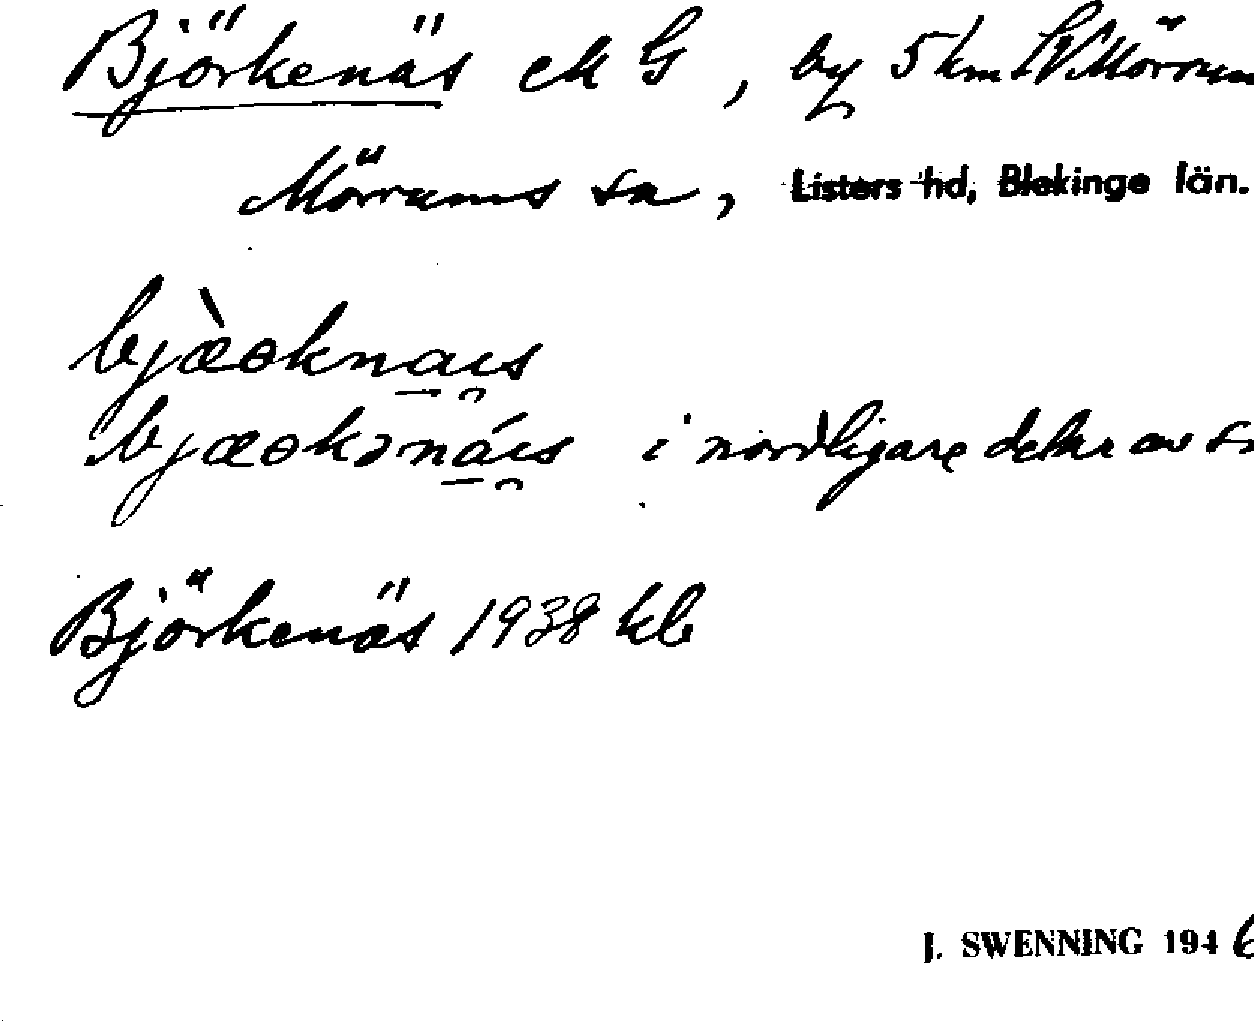 Björkenäs ek G, by 5 km SV Mörrum
Mörrums sn, Listers hd, Blekinge län.
bjæ̀oknais
bjæokənáis i nordligare delar av sn
Björkenäs 1938 kb
J. SWENNING 1946